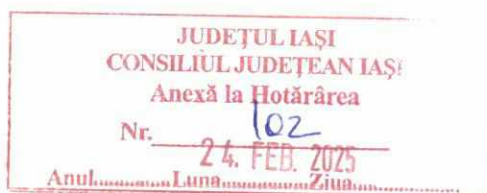 JUDEȚUL IAȘI
CONSILIUL JUDEȚEAN IAȘI
Anexă la Hotărârea
Nr. 102
24. FEB. 2025
Anul............Luna................Ziua..................